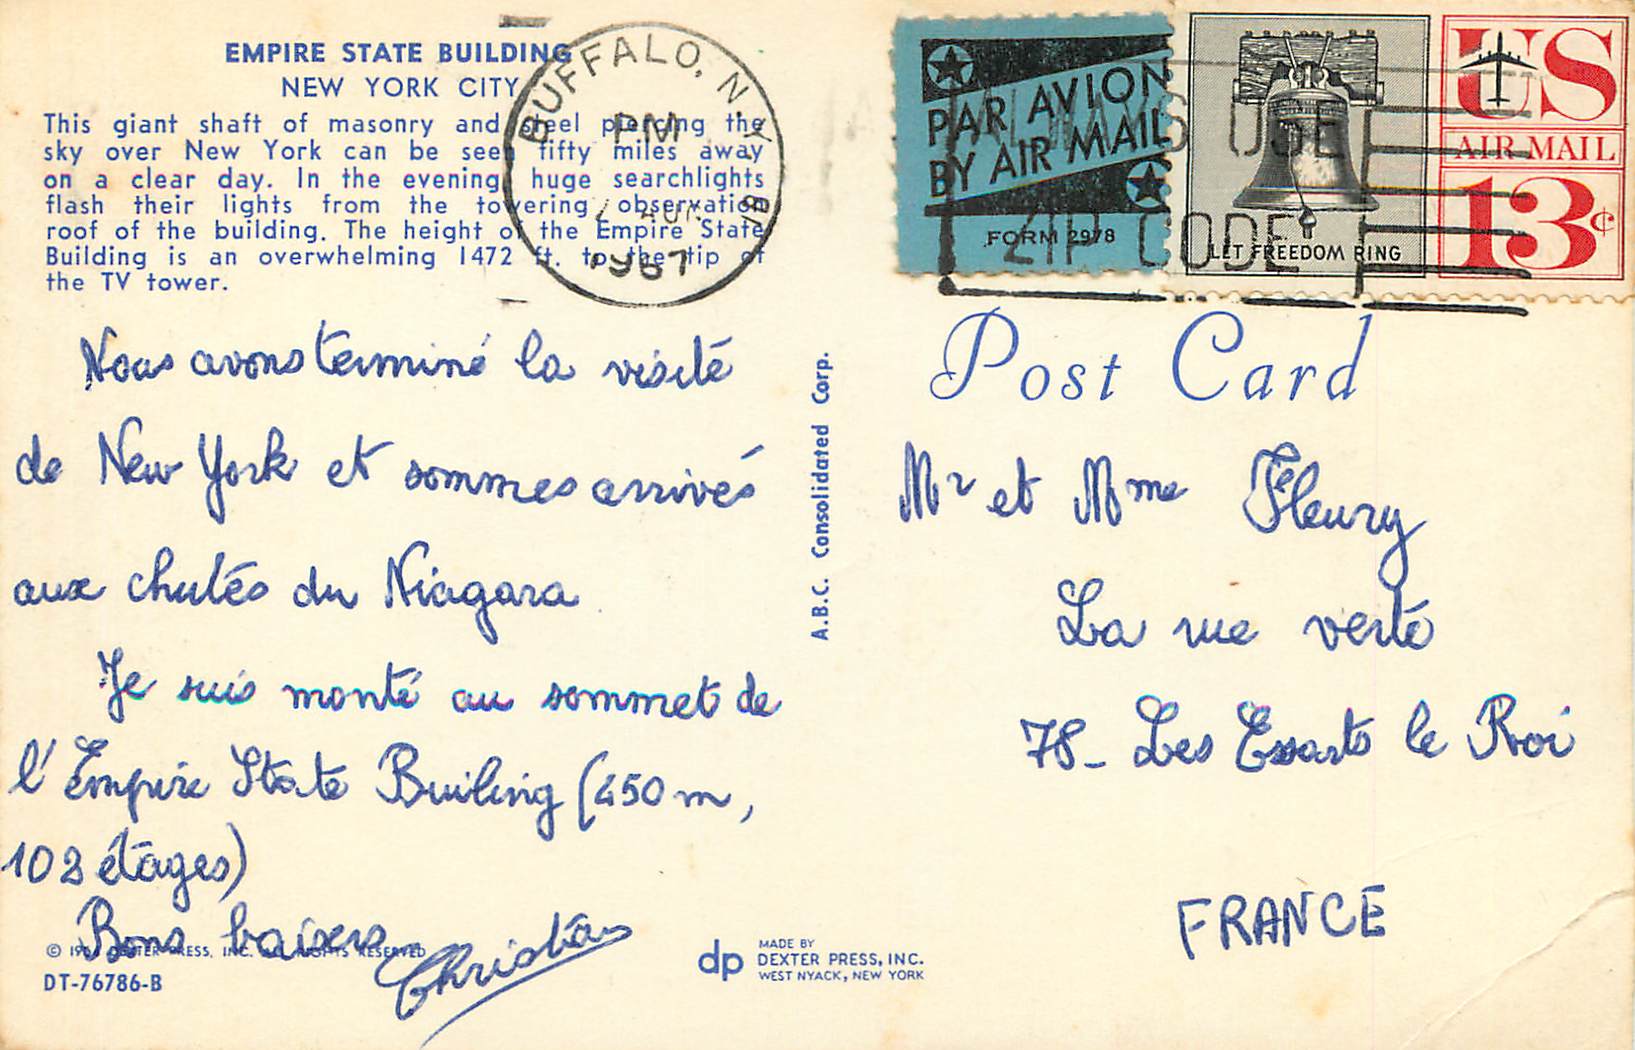 EMPIRE STATE BUILDING
NEW YORK CITY
This giant shaft of masonry and steel piercing the
sky over New York can be seen fifty miles away
on a clear day. In the evening, huge searchlights
flash their lights from the towering observation
roof of the building. The height of the Empire State
Building is an overwhelming 1472 ft. to the tip of
the TV tower.
BUFFALO, N.Y.
PM
1967
PAR AVION
BY AIR MAIL
FORM 2978
ALWAYS USE
ZIP CODE
LET FREEDOM RING
US
AIR MAIL
13¢
Nous avons terminé la visite
de New York et sommes arrivés
aux chutes du Niagara
Je suis monté au sommet de
l'Empire State Builing (450 m,
102 étages)
Bons baisers
Christian
A.B.C. Consolidated Corp.
Post Card
Mr et Mme Fleury
La rue verte
78_ Les Essarts le Roi
FRANCE
© DEXTER PRESS, INC. ALL RIGHTS RESERVED
DT-76786-B
dp
MADE BY
DEXTER PRESS, INC.
WEST NYACK, NEW YORK